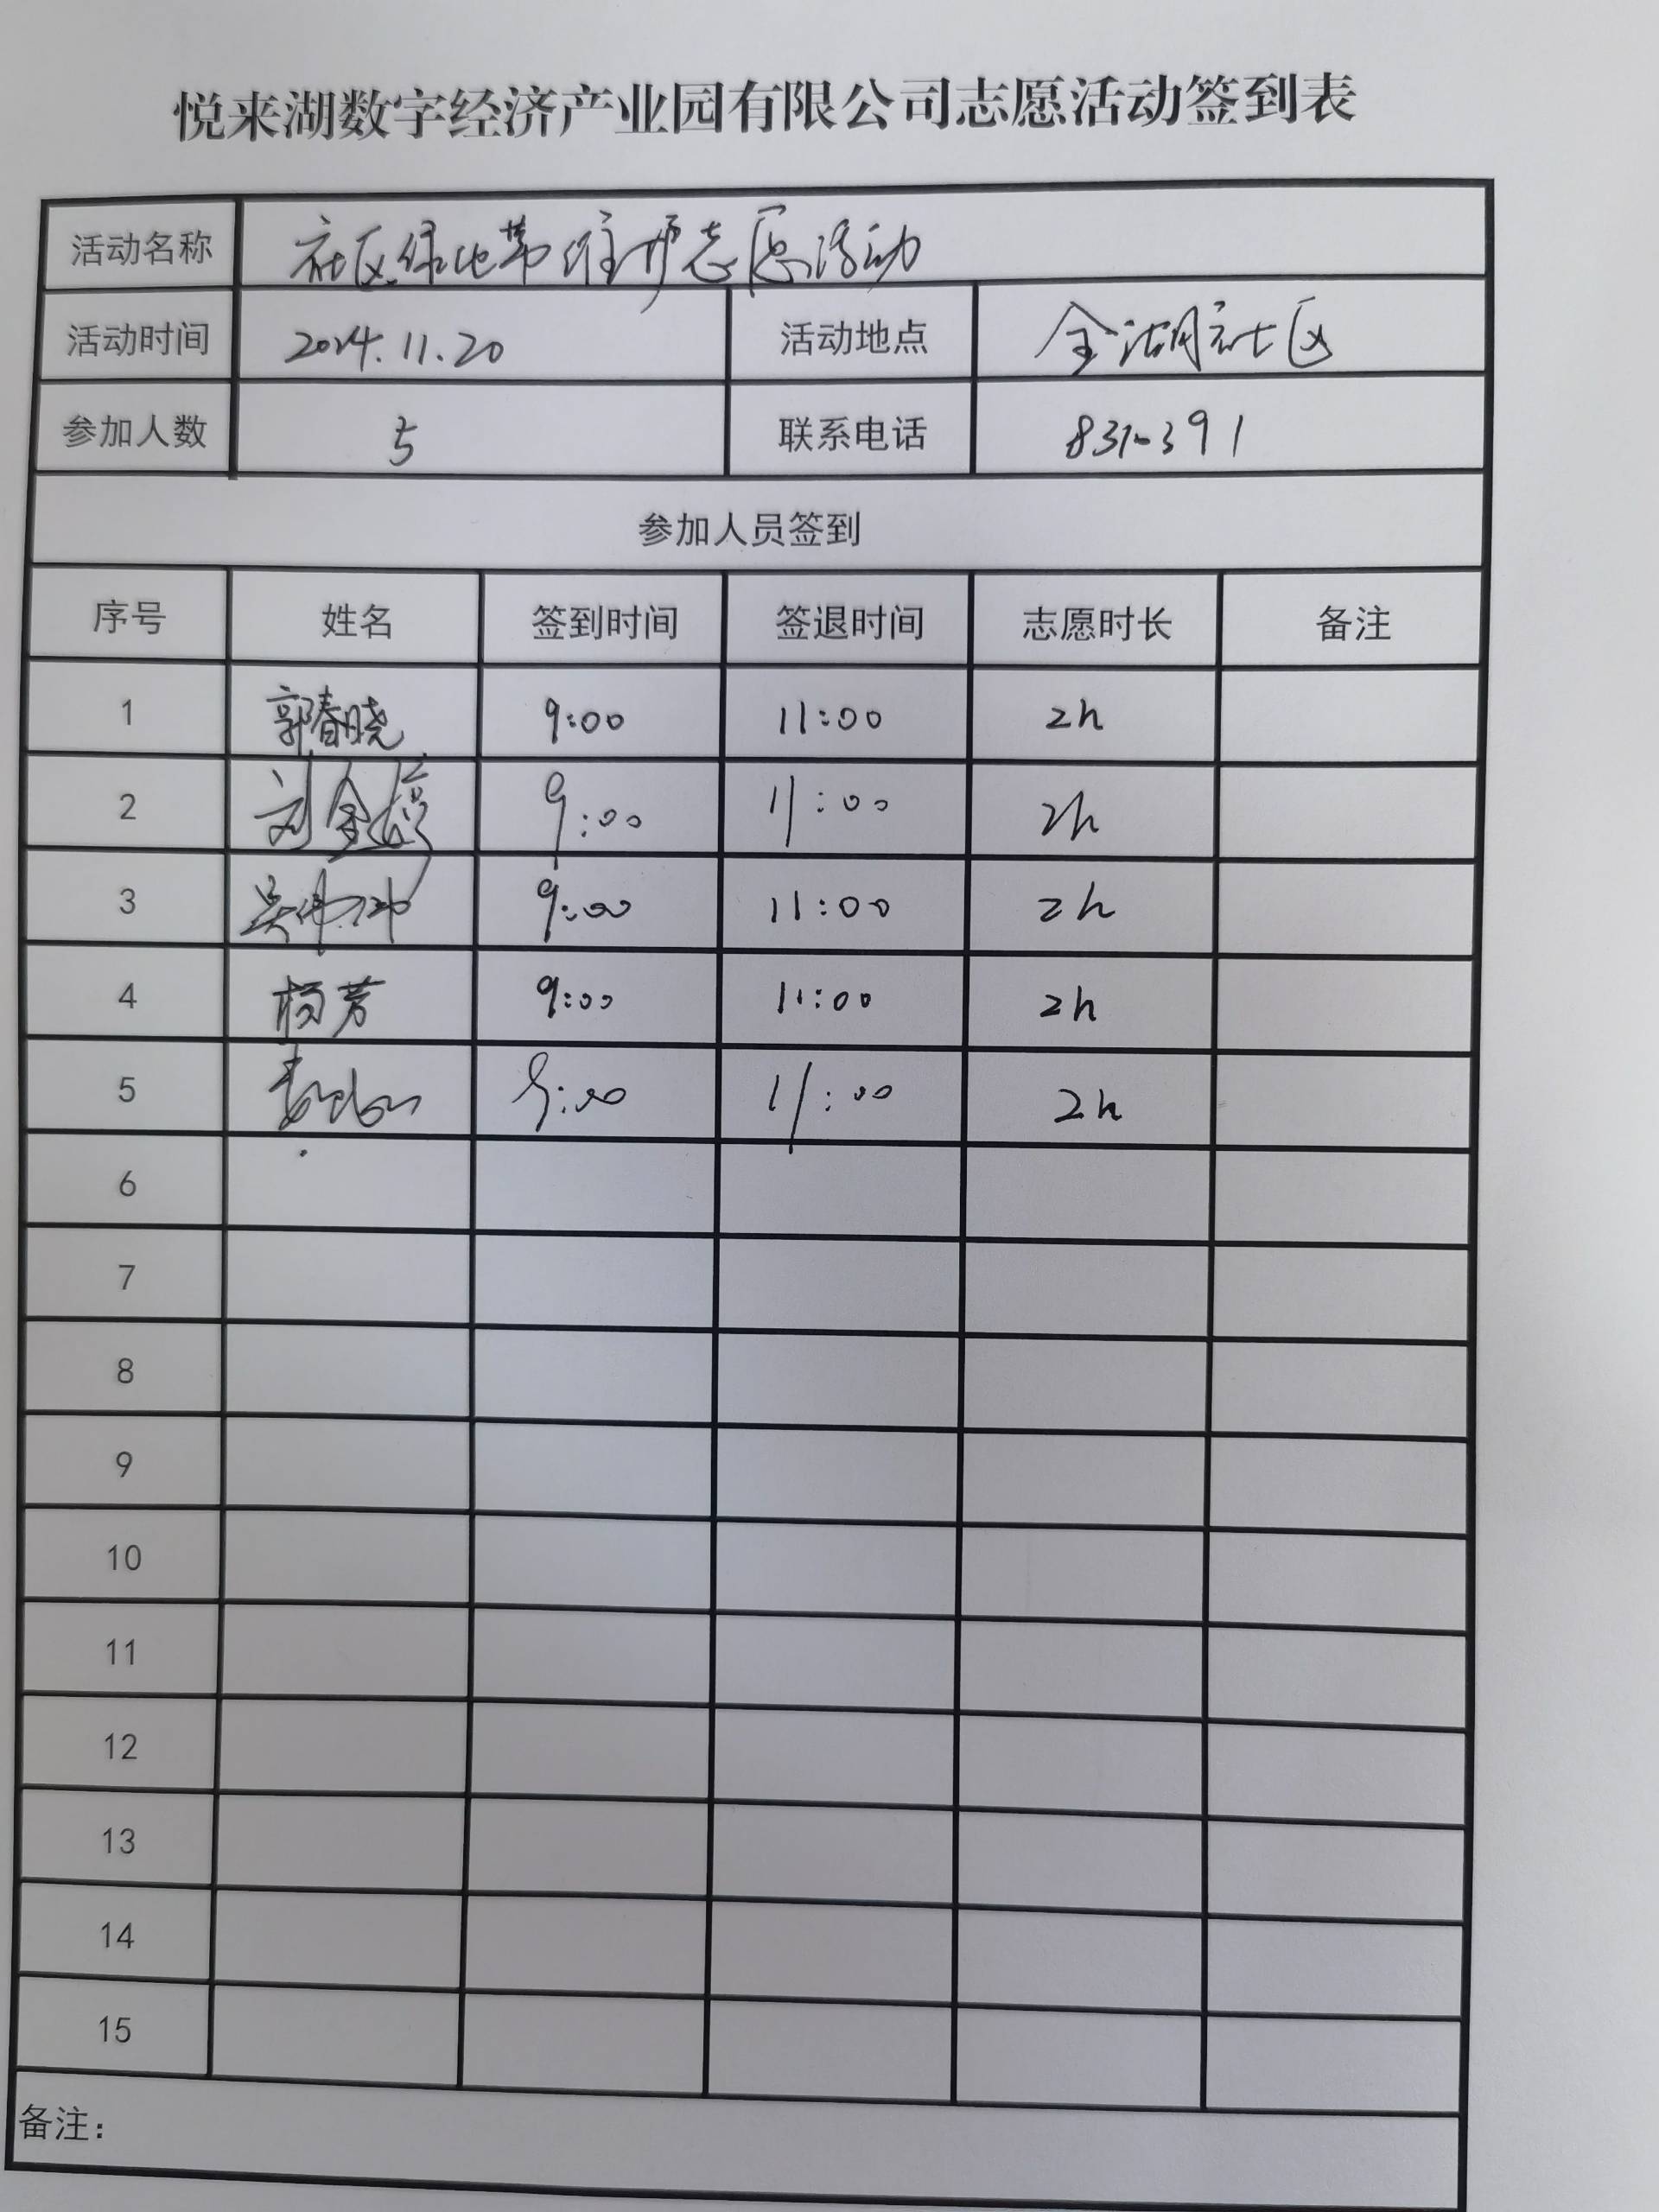 悦来湖数字经济产业园有限公司志愿活动签到表
活动名称 社区绿化带维护志愿活动
活动时间 2024.11.20 活动地点 金湖社区
参加人数 5 联系电话
参加人员签到
序号 姓名 签到时间 签退时间 志愿时长 备注
1 郭春晓 9:00 11:00 2h
2 刘金 9:00 11:00 2h
3 吴伟 9:00 11:00 2h
4 杨芳 9:00 11:00 2h
5 9:00 11:00 2h
6
7
8
9
10
11
12
13
14
15
备注：